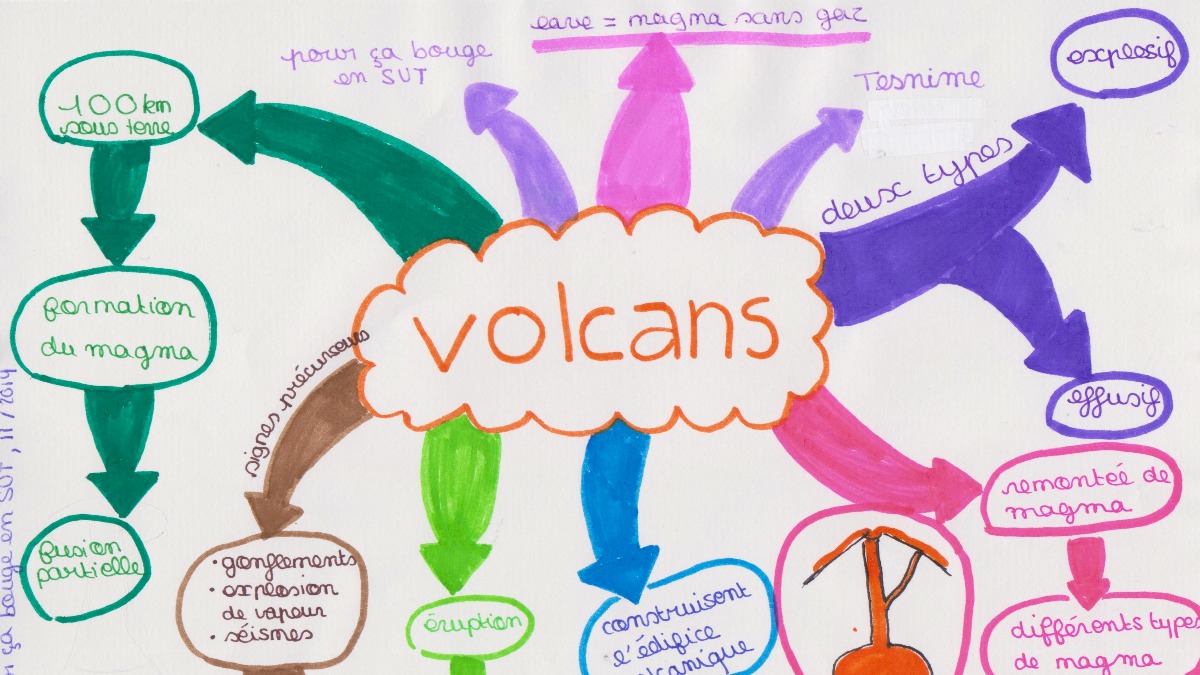 lave = magma sans gaz
pour ça bouge
en SVT
Tesnime
explosif
100 km
sous terre
deux types
formation
du magma
volcans
signes précurseurs
effusif
remontée de
magma
fusion
partielle
• gonflements
• explosion
de vapeur
• séismes
éruption
construisent
l'édifice
volcanique
différents types
de magma
ça bouge en SVT, 11/2014